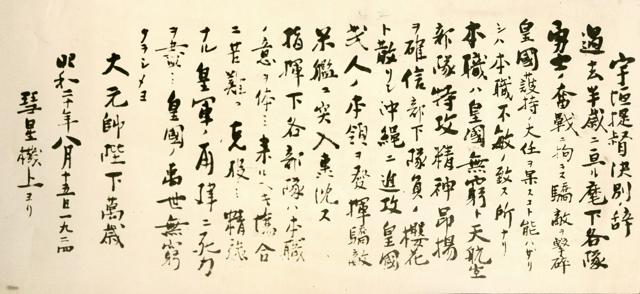 宇垣提督決別ノ辞
過去半歳ニ亘ル麾下各隊
勇士ノ奮戦ニ拘ラズ驕敵ヲ撃砕
皇國護持ノ大任ヲ果スコト能ハザリ
シハ本職不敏ノ致ス所ナリ
本職ハ皇國無窮ト天航空
部隊特攻精神昂揚
ヲ確信部下隊員ノ櫻花
ト散リシ沖縄ニ進攻皇國
武人ノ本領ヲ発揮驕敵
米艦ニ突入轟沈ス
指揮下各部隊ハ本職
ノ意ヲ体シ来ルベキ
ニ苦難ヲ克服シ精強
ナル皇軍ノ再建ニ死力
ヲ 皇國ノ萬世無窮
タラシメヨ
大元帥陛下萬歳
昭和二十年八月十五日一九二四
彗星機上ヨリ